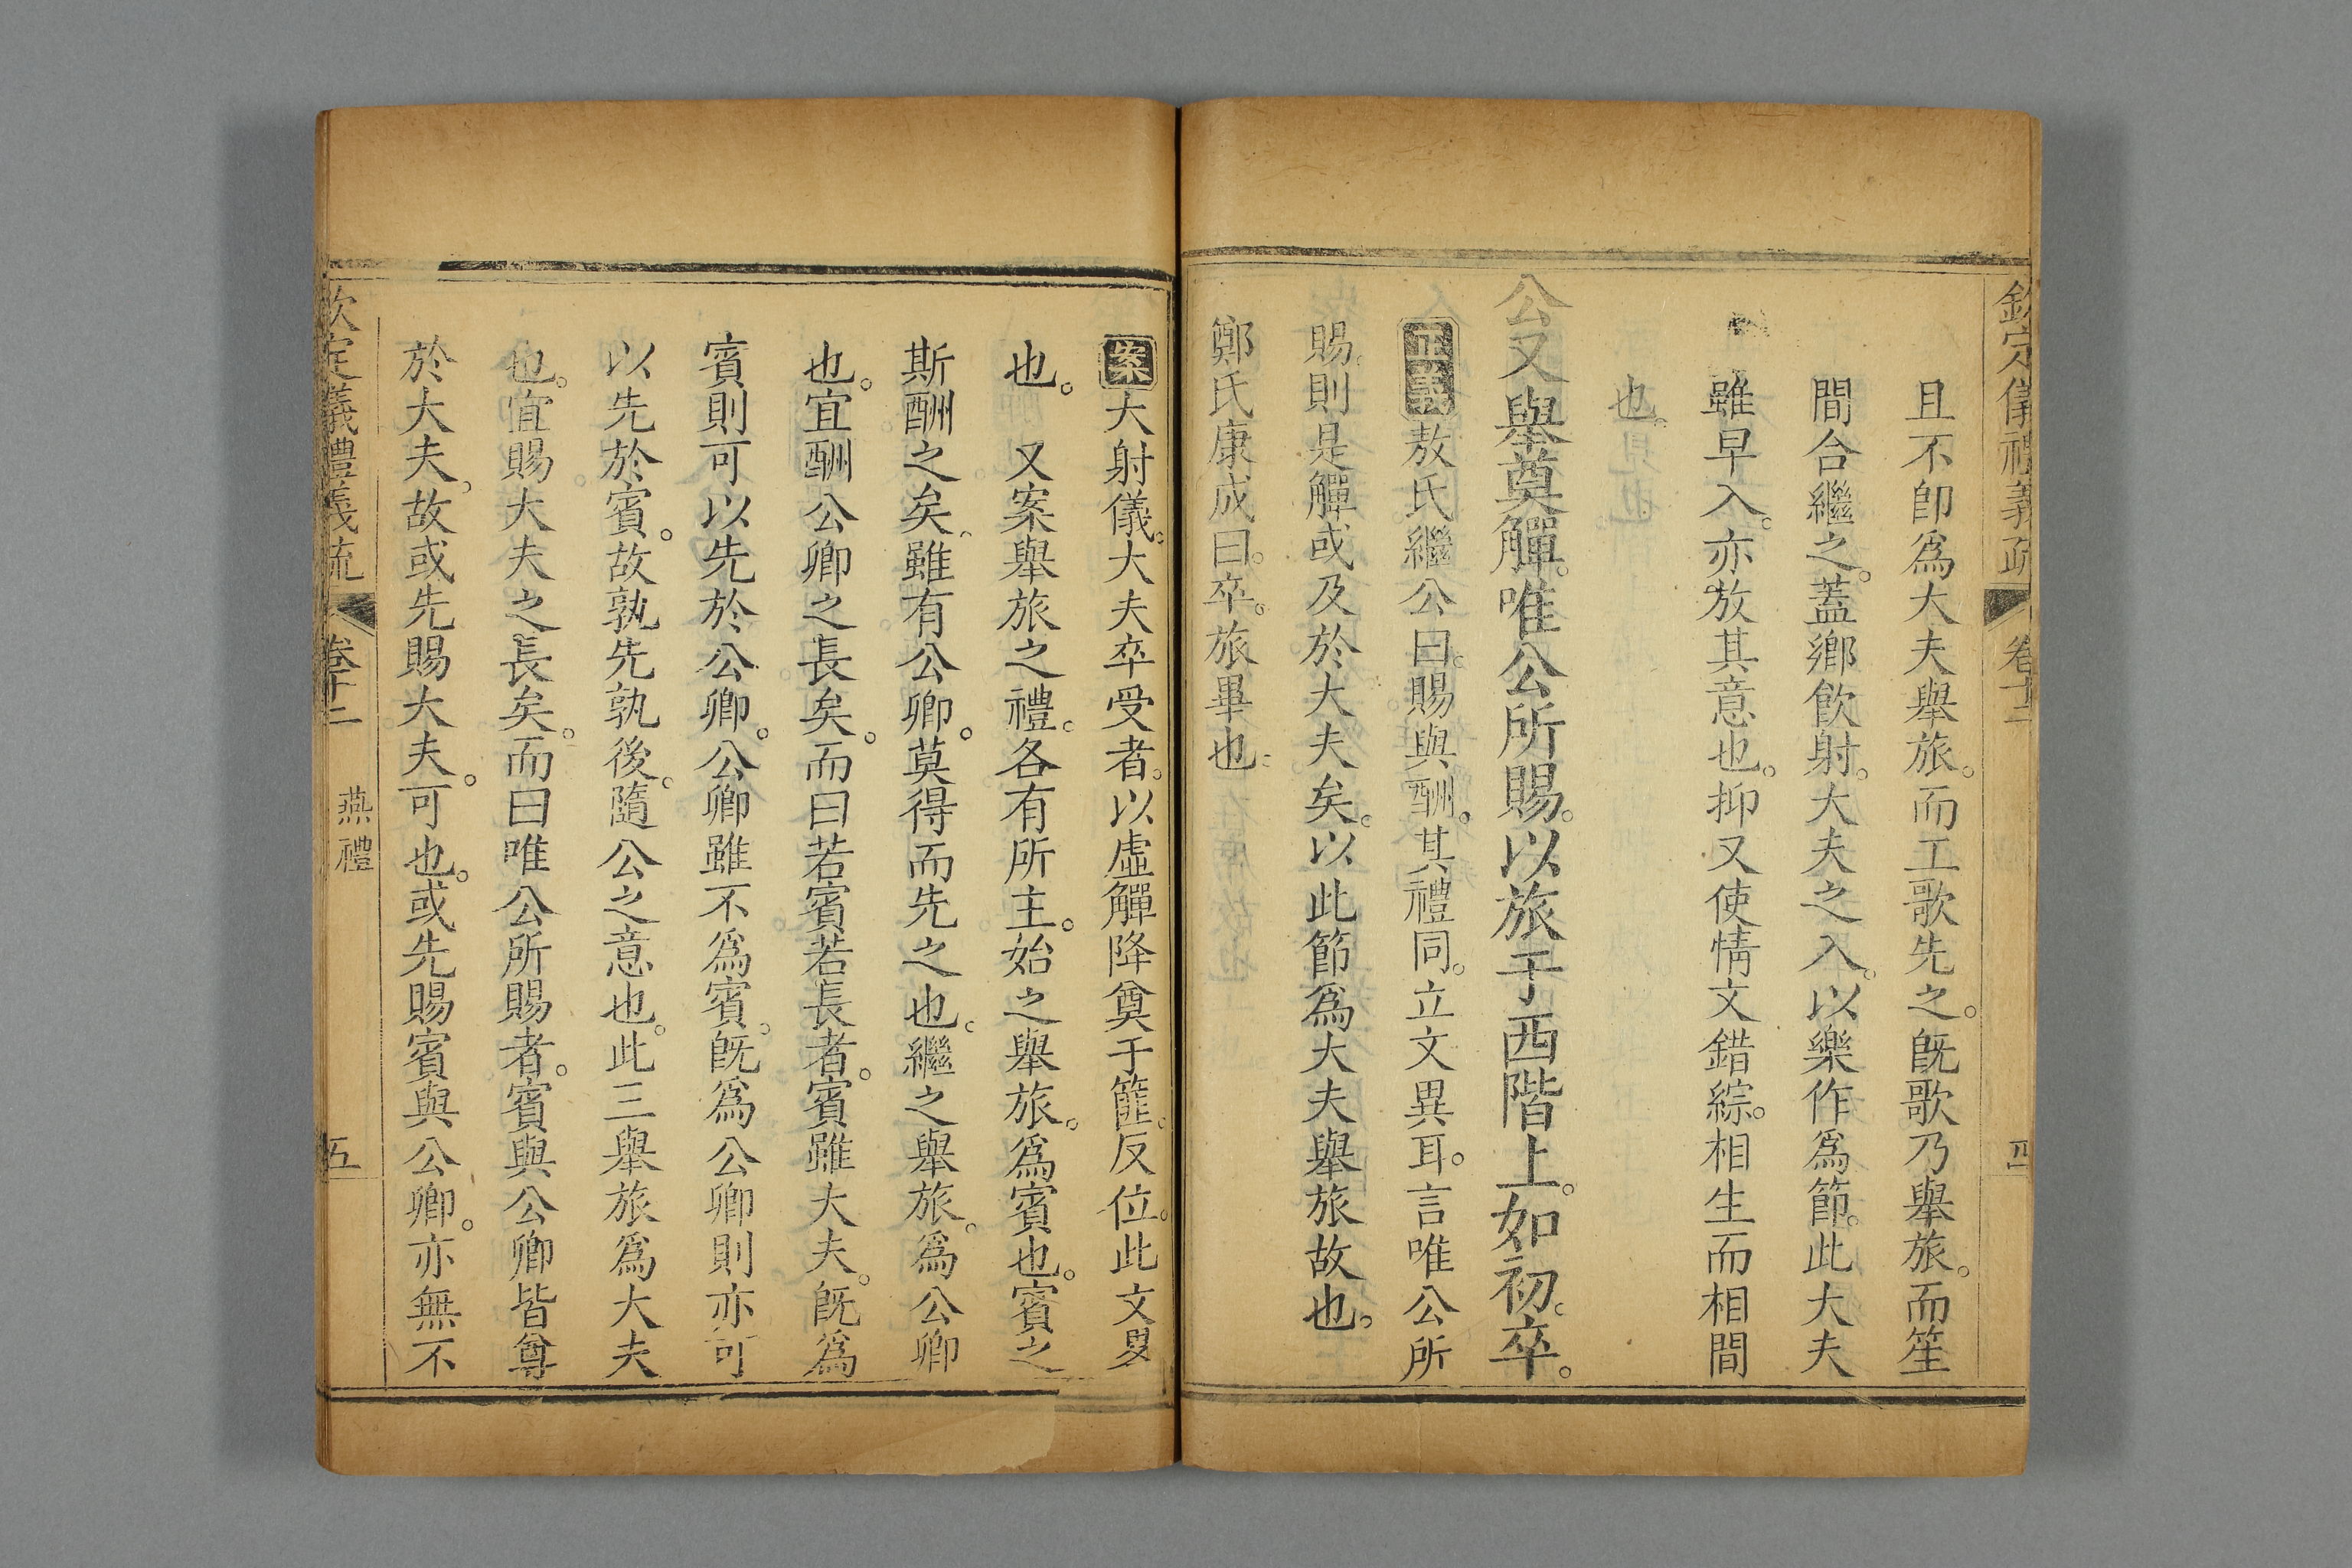 欽定儀禮義疏 卷十二 四
且不卽爲大夫舉旅。而工歌先之。旣歌乃舉旅。而笙
間合繼之。蓋鄉飮射。大夫之入。以樂作爲節。此大夫
雖早入。亦放其意也。抑又使情文錯綜。相生而相間
也。
公又舉奠觶。唯公所賜。以旅于西階上。如初。卒。
正義敖氏繼公曰。賜與酬。其禮同。立文異耳。言唯公所
賜。則是觶或及於大夫矣。以此節爲大夫舉旅故也。
鄭氏康成曰。卒。旅畢也。
案大射儀。大夫卒受者。以虛觶降奠于篚。反位。此文畧
也。 又案舉旅之禮。各有所主。始之舉旅。爲賓也。賓之
斯酬之矣。雖有公卿。莫得而先之也。繼之舉旅。爲公卿
也。宜酬公卿之長矣。而曰若賓若長者。賓雖大夫。旣爲
賓則可以先於公卿。公卿雖不爲賓。旣爲公卿則亦可
以先於賓。故孰先孰後。隨公之意也。此三舉旅爲大夫
也。宜賜大夫之長矣。而曰唯公所賜者。賓與公卿皆尊
於大夫。故或先賜大夫。可也。或先賜賓與公卿。亦無不
欽定儀禮義疏 卷十二 燕禮 五